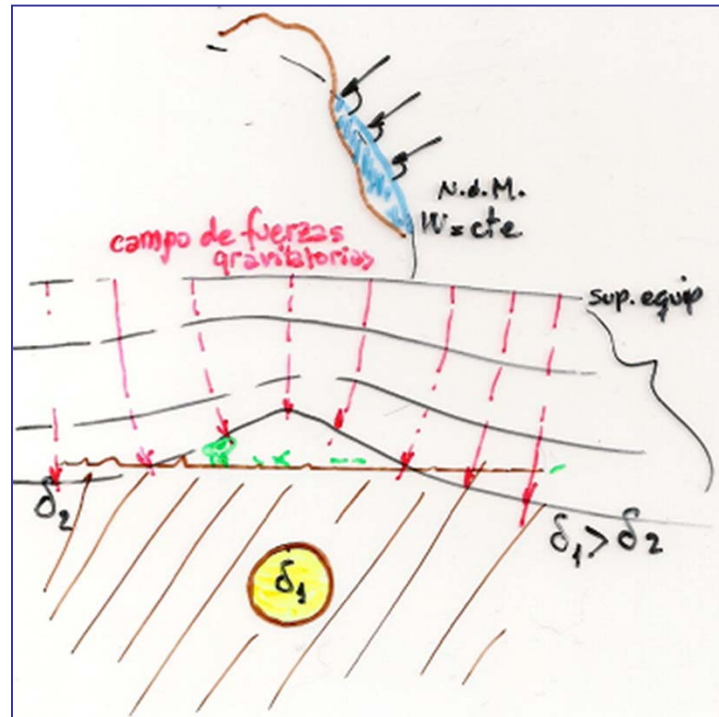 N.d.M.
W = cte
campo de fuerzas
gravitatorias
sup. equip
δ2
δ1 > δ2
δ1